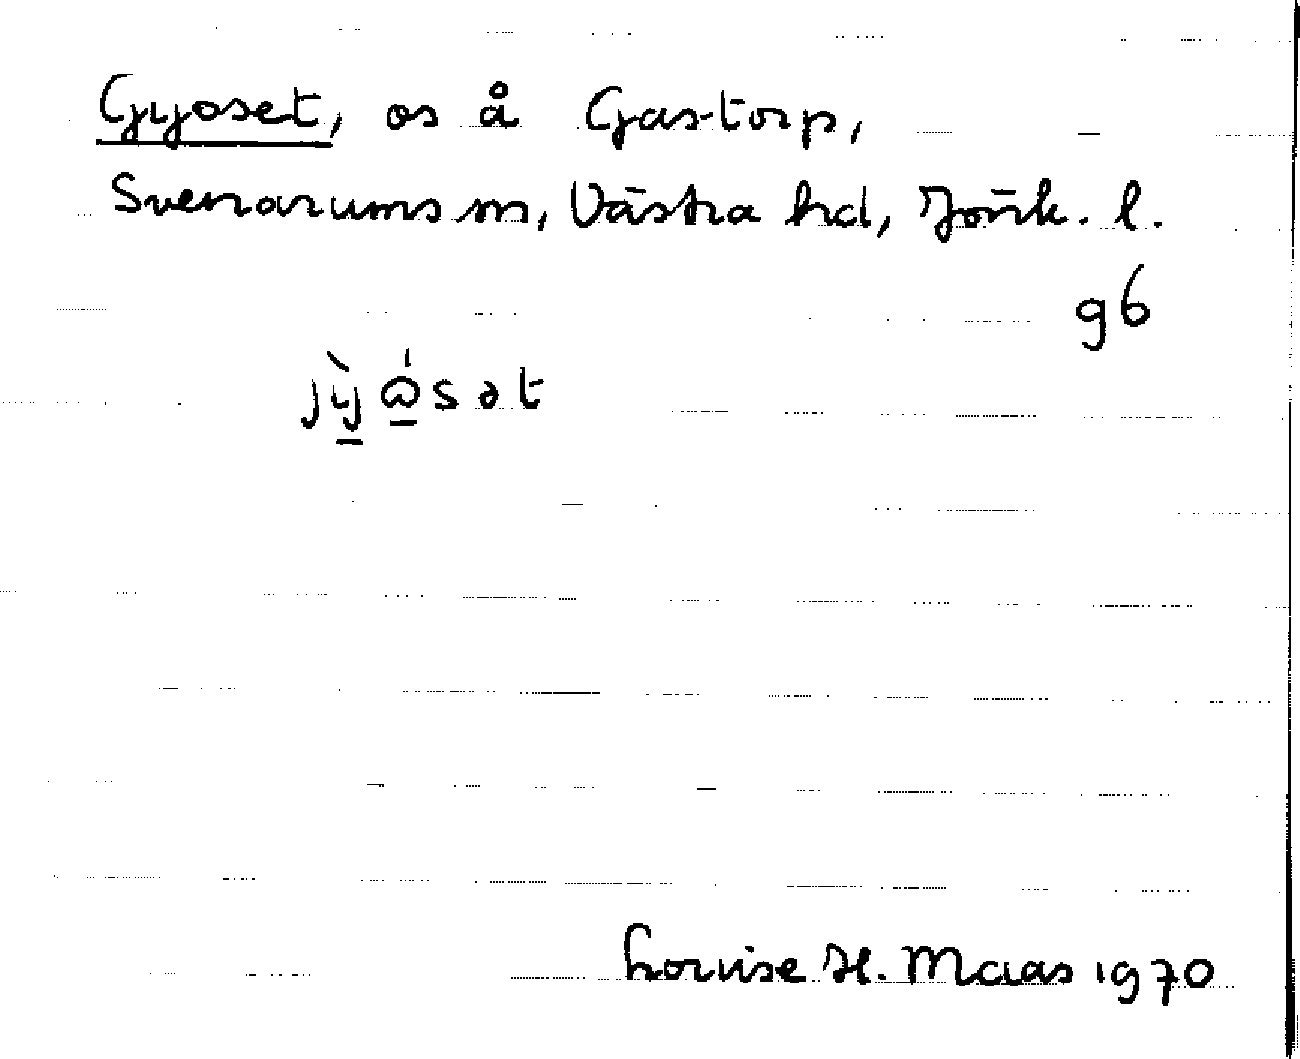 Gyoset, os å Gastorp,
Svenarums sn, Västra hd, Jönk. l.
96
jỳ̱ ɷ̱́sət
Louise H. Maas 1970